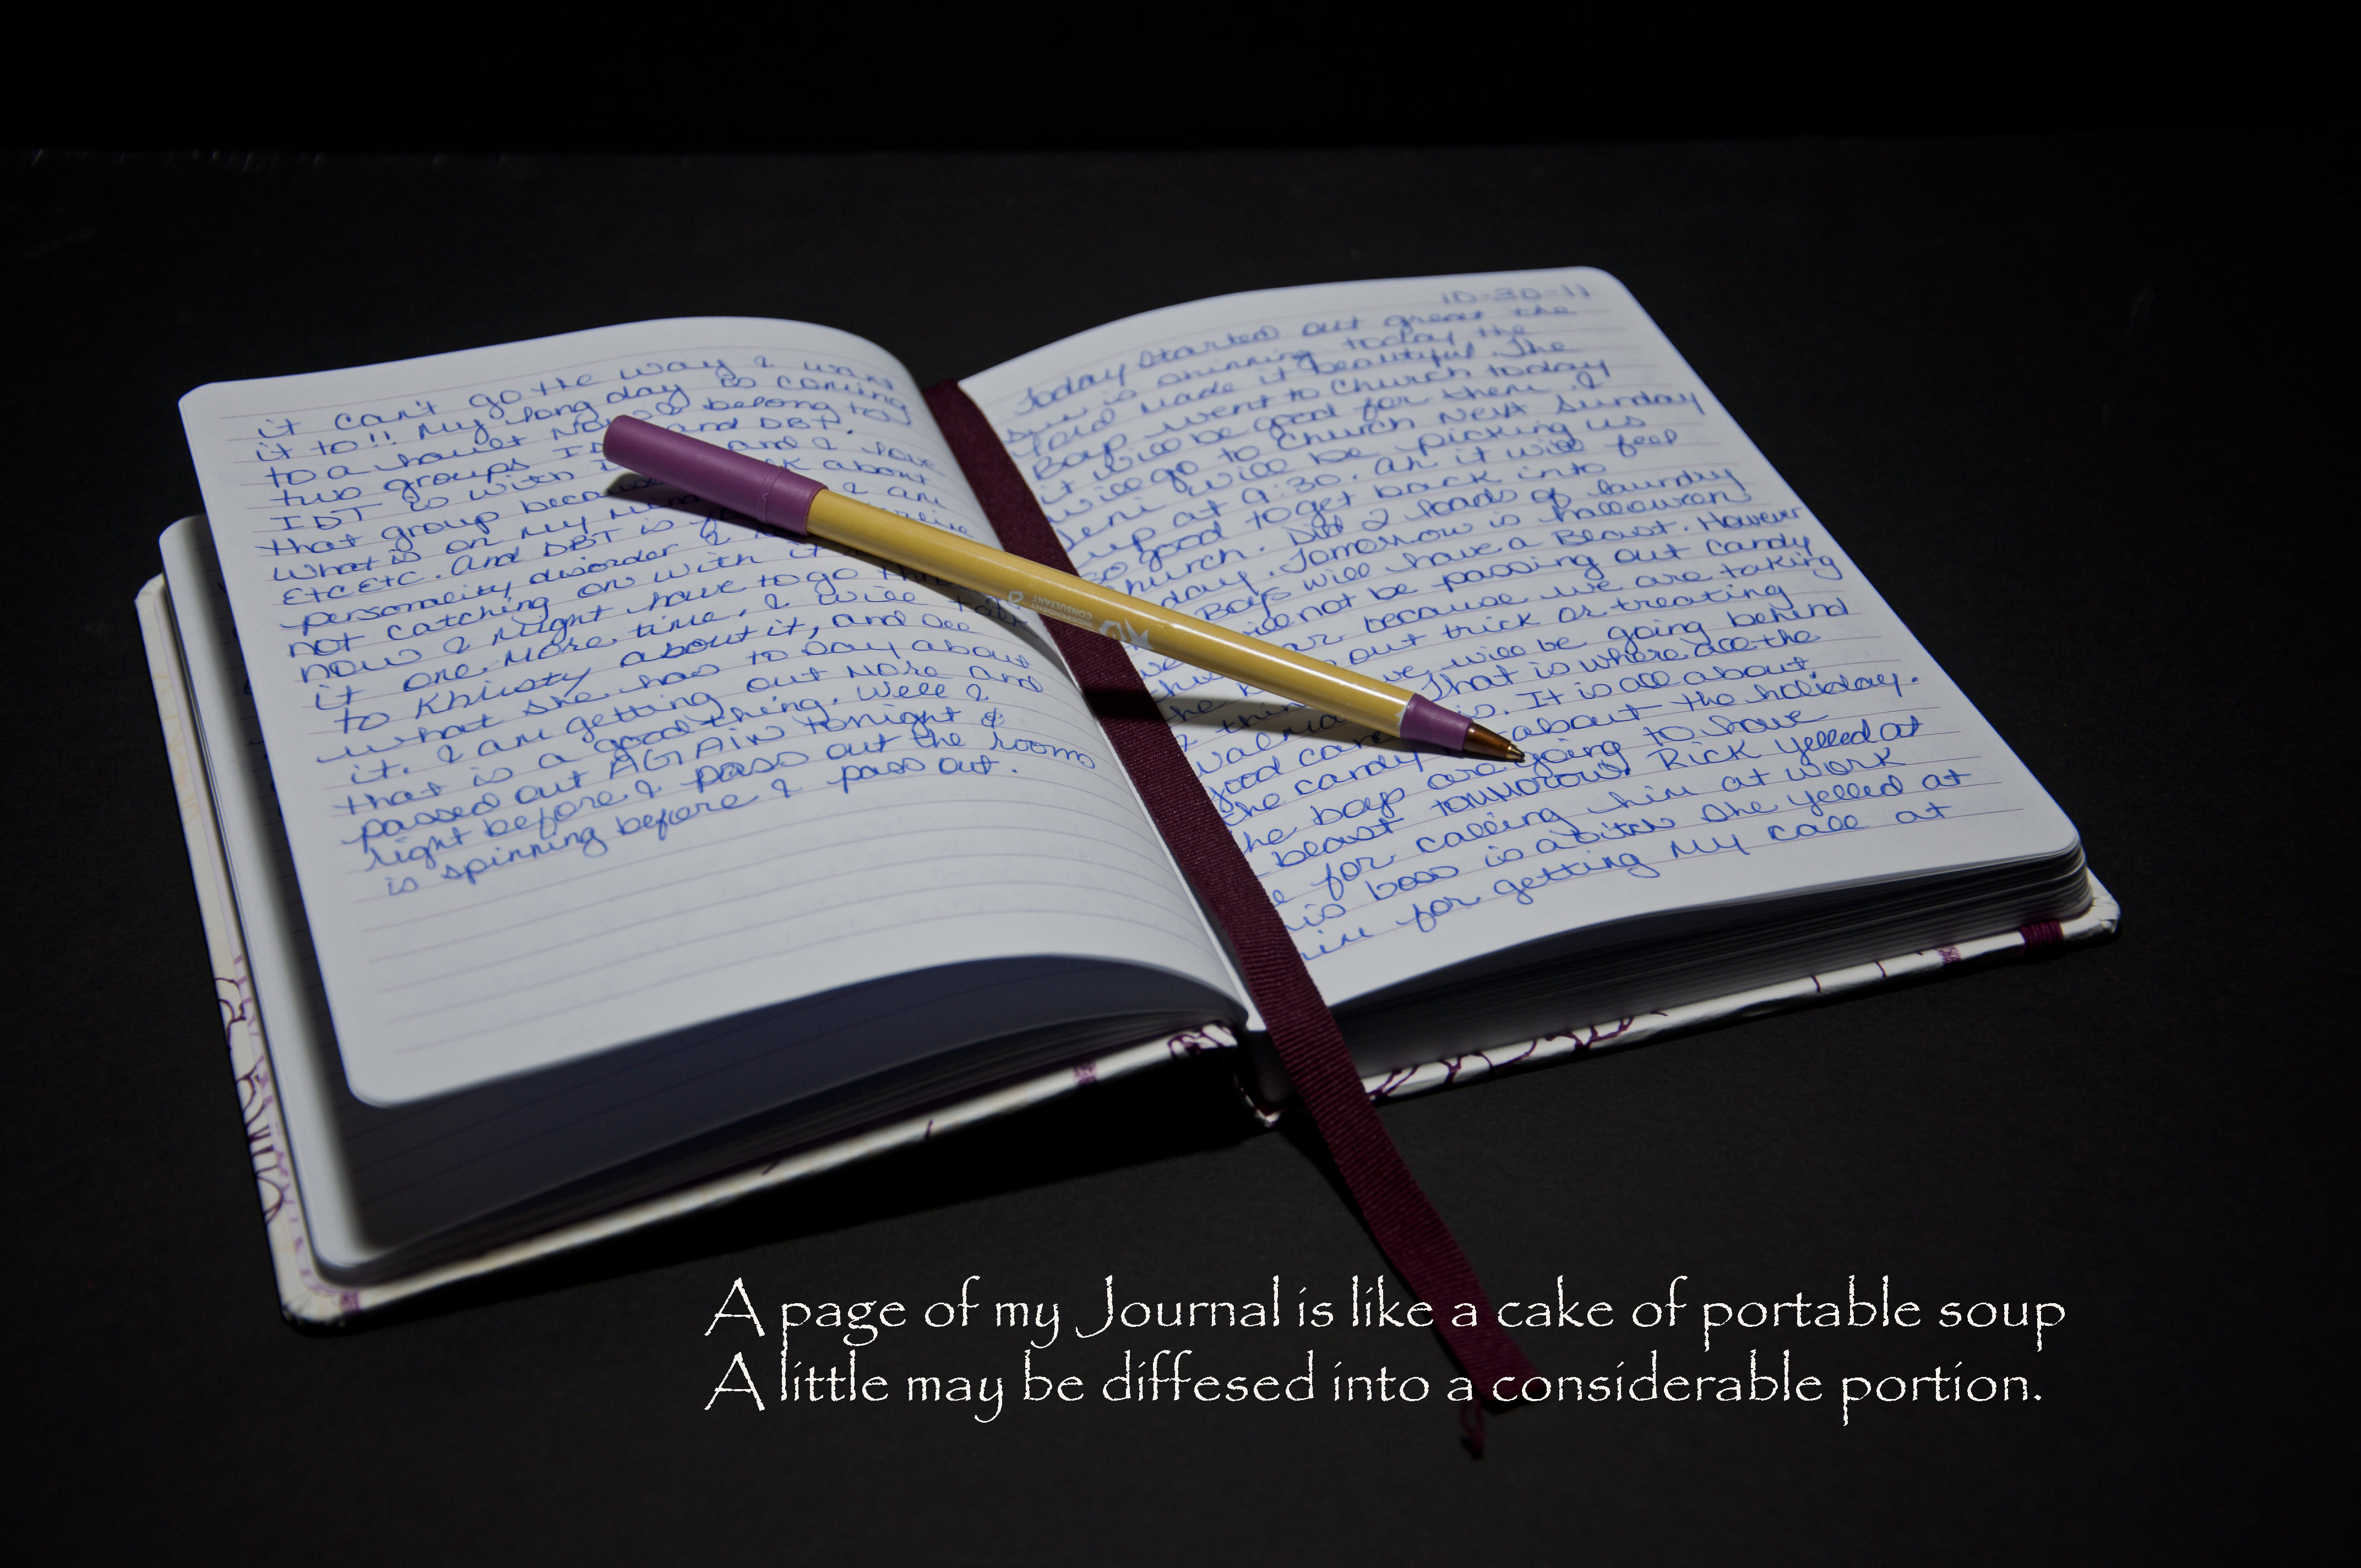 it can't go the way I want
it to!! My long day is coming
to a halt NOW I belong to
two groups and DBT.
IDT is with and I have
that group because about
what is on my mind I am
Etc Etc. And DBT is
personality disorder I
not catching on with it
now I might have to go thru
it one more time, I will talk
to Khristy about it, and see
what she has to say about
it. I am getting out more and
that is a good thing. Well I
passed out AGAIN tonight &
right before I pass out the room
is spinning before I pass out.
10-30-11
Today started out great the
sun is shining today the
lord made it beautiful. The
Boys went to Church today
it will be good for them. I
will go to Church Next Sunday
Jeni will be picking us
up at 9:30. Ah it will feel
so good to get back into
church. Did 2 loads of laundry
day. Tomorrow is halloween
Boys will have a Beast. However
will not be passing out candy
because we are taking
out trick or treating
we will be going behind
That is where all the
good is. It is all about
the candy about the holiday.
the boys are going to have
beast tomorrow. Rick yelled at
me for calling him at work
his boss is a bitch she yelled at
him for getting my call at
INDEPENDENT
CONSULTANT
A page of my Journal is like a cake of portable soup
A little may be diffesed into a considerable portion.